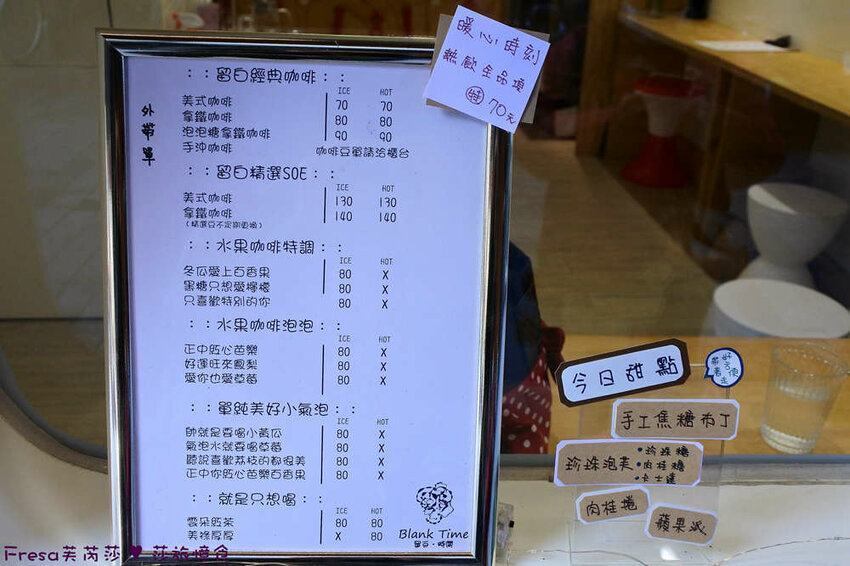 外帶單
：：留白經典咖啡：：
ICE HOT
美式咖啡 70 70
拿鐵咖啡 80 80
泡泡糖拿鐵咖啡 90 90
手沖咖啡 咖啡豆單請洽櫃台
：：留白精選SOE：：
ICE HOT
美式咖啡 130 130
拿鐵咖啡 140 140
(精選豆不定期更換)
：：水果咖啡特調：：
ICE HOT
冬瓜愛上百香果 80 X
黑糖只想愛檸檬 80 X
只喜歡特別的你 80 X
：：水果咖啡泡泡：：
ICE HOT
正中紅心芭樂 80 X
好運旺來鳳梨 80 X
愛你也愛草莓 80 X
：：單純美好小氣泡：：
ICE HOT
帥就是要喝小黃瓜 80 X
氣泡水就要喝草莓 80 X
聽說喜歡荔枝的都很美 80 X
正中你紅心芭樂百香果 80 X
：：就是只想喝：：
ICE HOT
雲朵紅茶 80 80
美祿厚厚 X 80
Blank Time
留白·時間
暖心時刻
熱飲全品項
特 70元
今日甜點
手工焦糖布丁
珍珠泡芙
•珍珠糖
•肉桂糖
•卡士達
肉桂捲
蘋果派
Fresa芙芮莎♥莎旅憶食